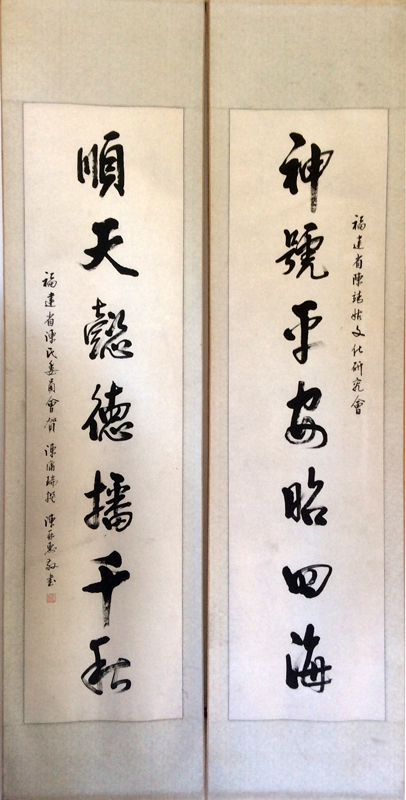 福建省陳靖姑文化研究會
神號平安昭四海
順天懿德播千秋
福建省陳氏委員會賀 陳 撰 陳 敬書